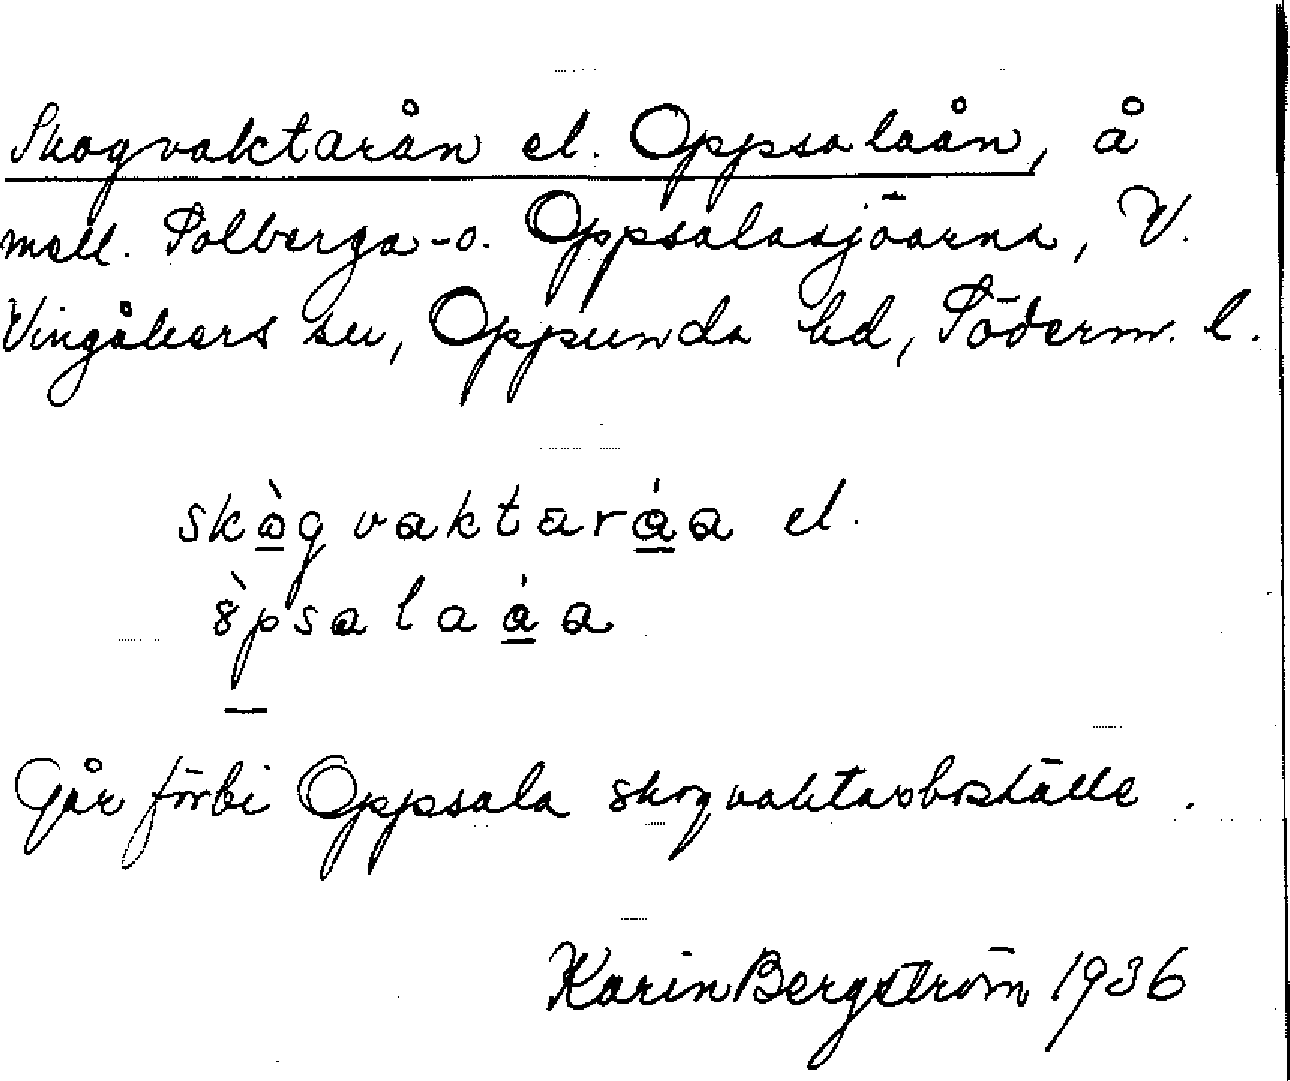 Skogvaktarån el. Oppsalaån, å
mell. Solberga- o. Oppsalasjöarna, V.
Vingåkers sn, Oppunda hd, Söderm. l.
skò̱gvaktará̱a el.
ọ̀psalaá̱a
Går förbi Oppsala skogvaktarboställe.
Karin Bergström 1936